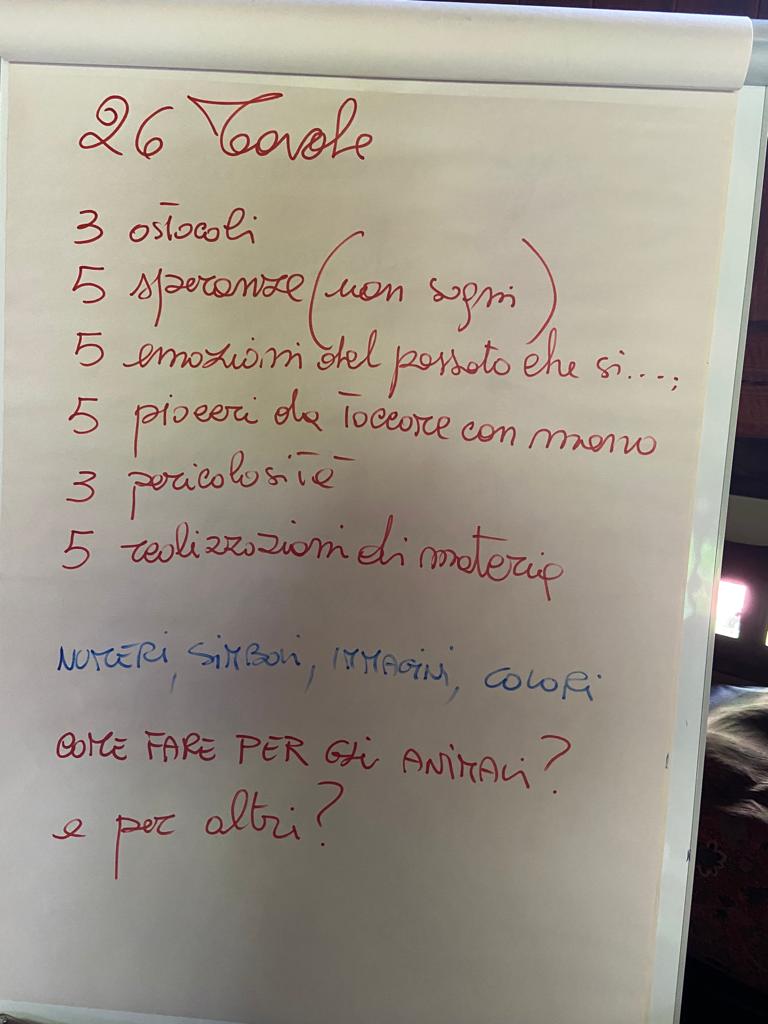 26 Tavole
3 ostacoli
5 speranze (non sogni)
5 emozioni del passato che si....;
5 piaceri da toccare con mano
3 pericolosità
5 realizzazioni di materia
NUMERI, SIMBOLI, IMMAGINI, COLORI
COME FARE PER GLI ANIMALI?
e per altri?